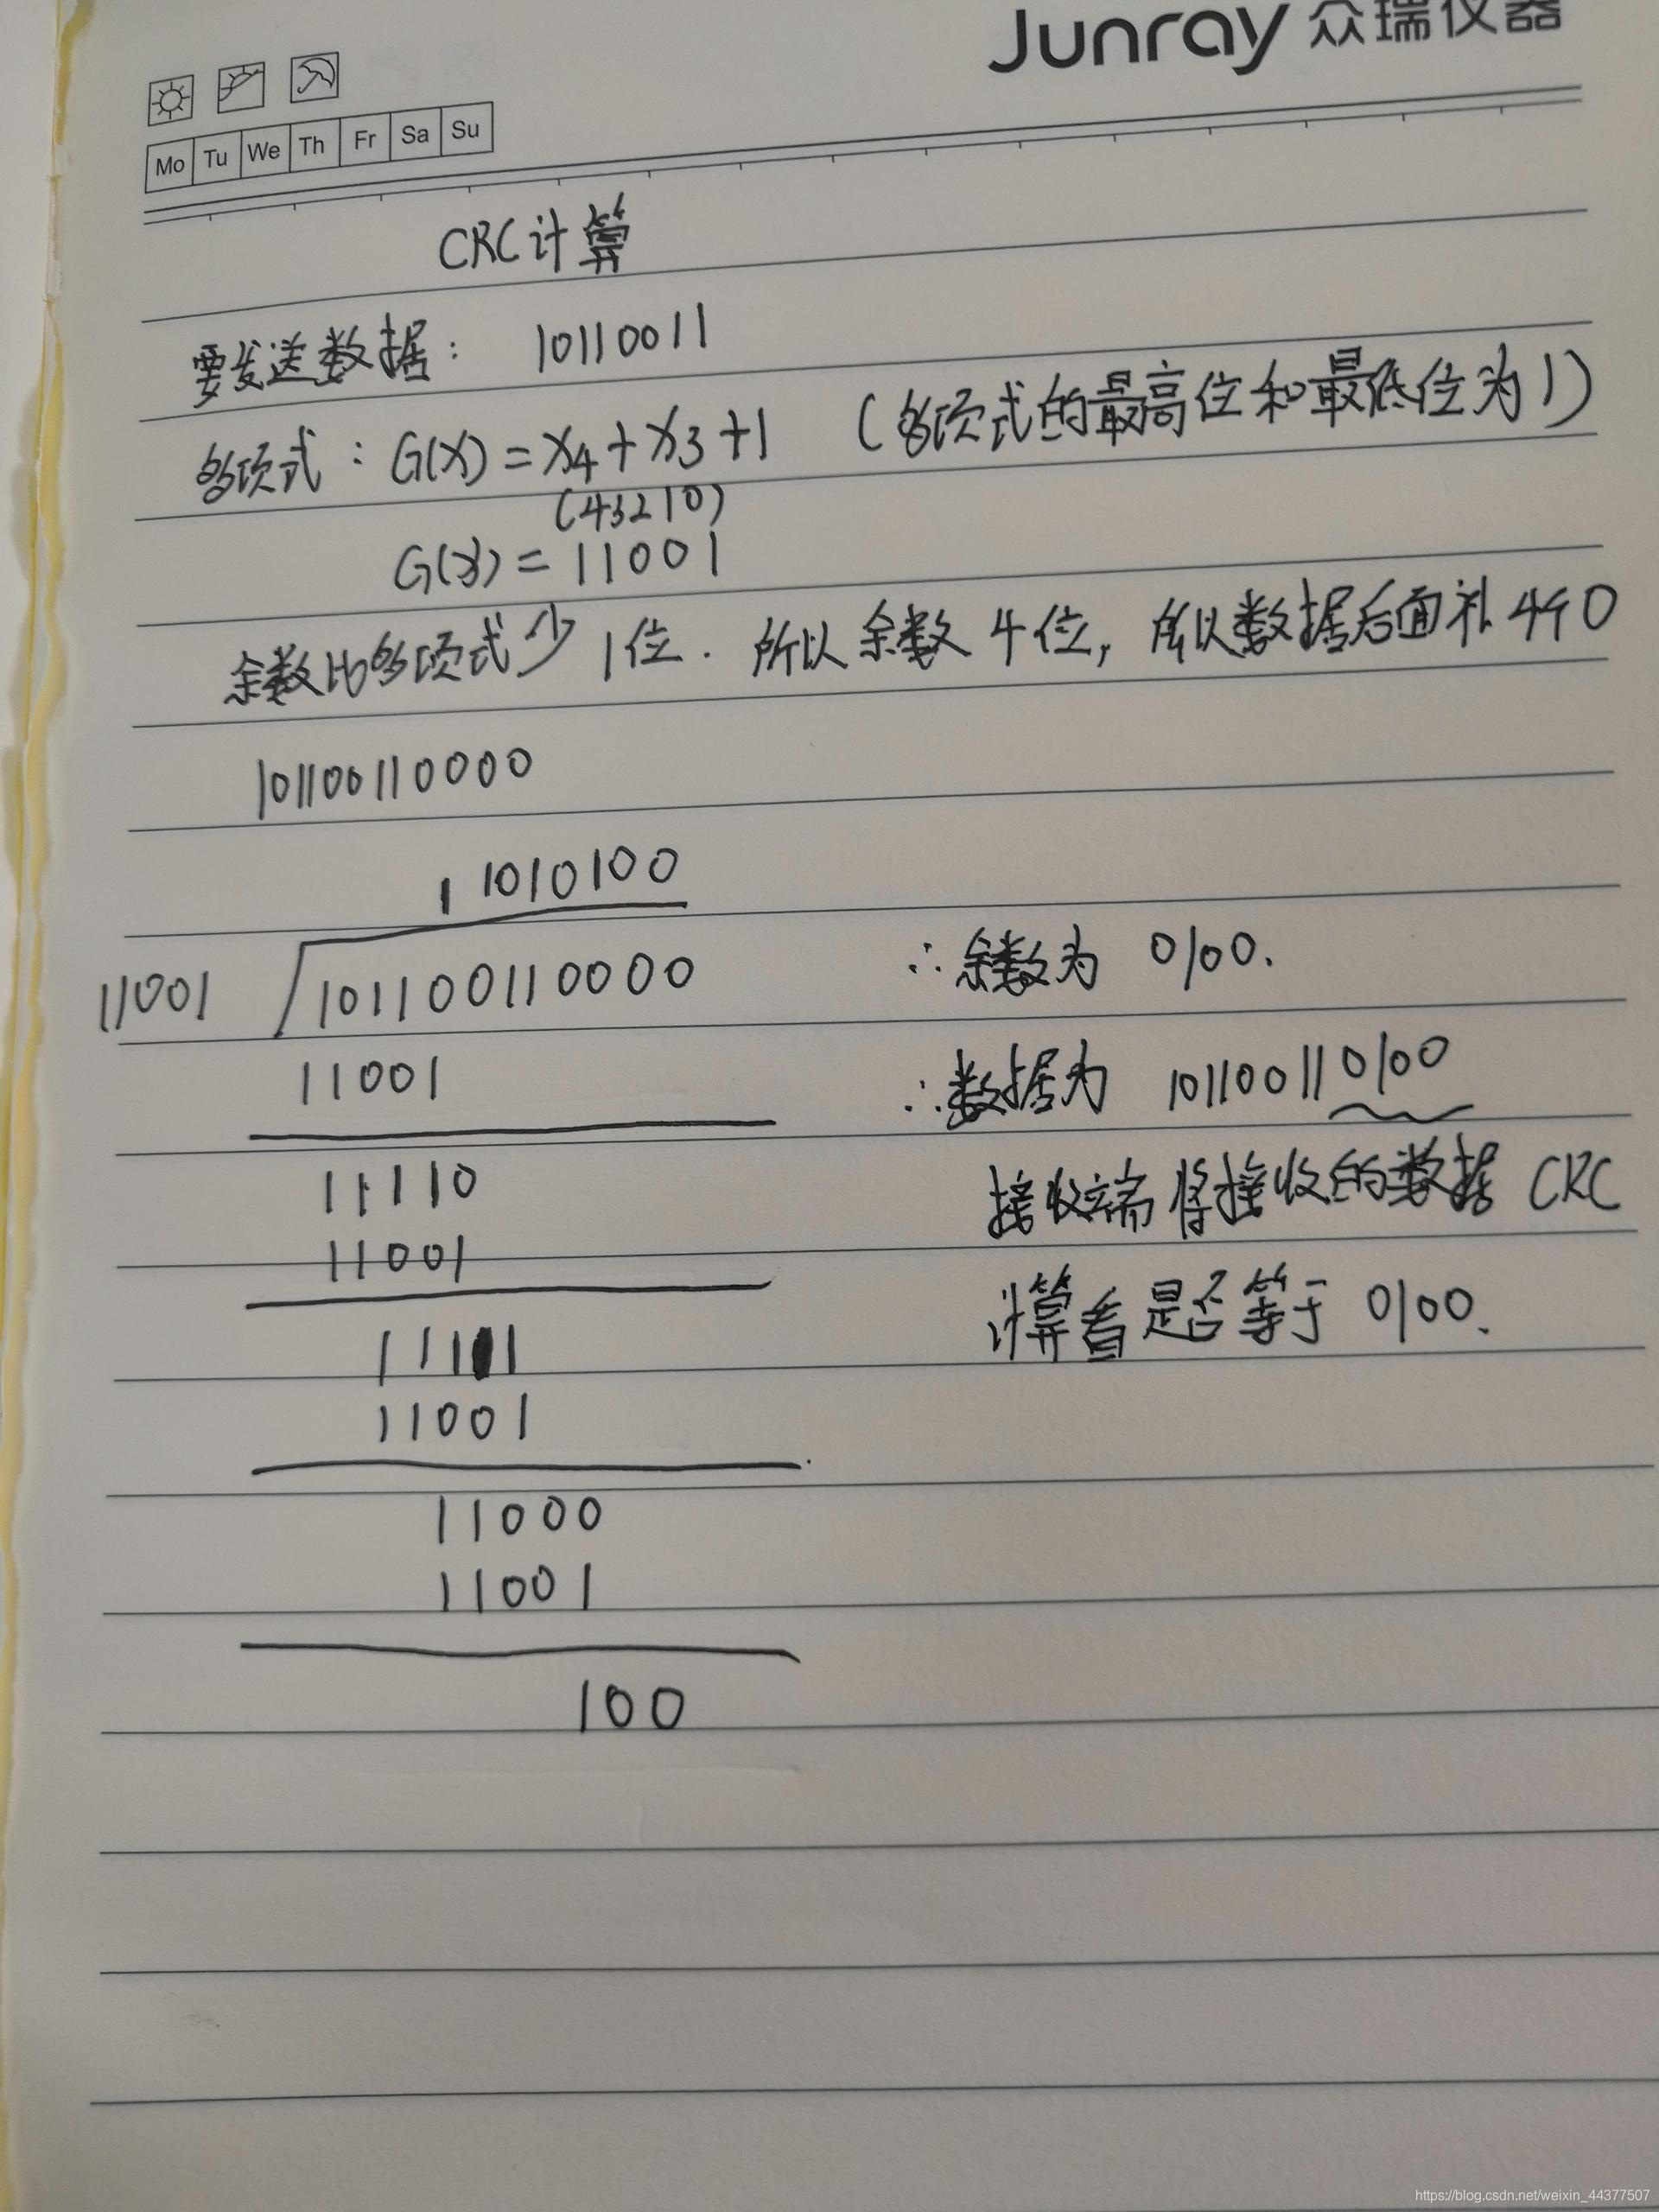 Junray 众瑞仪器
Mo Tu We Th Fr Sa Su
CRC计算
要发送数据： 10110011
多项式：G(X)=X4+X3+1 (多项式的最高位和最低位为1)
(43210)
G(X)=11001
余数比多项式少1位.所以余数4位,所以数据后面补4个0
101100110000
11010100
11001 101100110000
∴余数为 0100.
11001
∴数据为 101100110100
11110
接收端将接收的数据CRC
11001
计算看是否等于0100.
1111
11001
11000
11001
100
https://blog.csdn.net/weixin_44377507